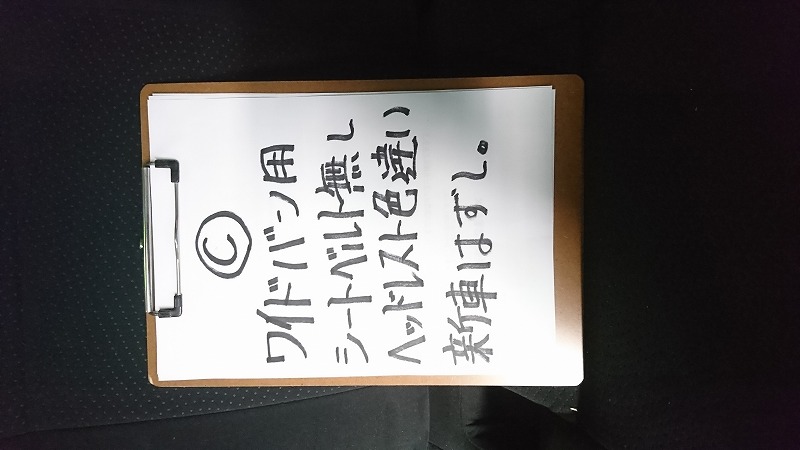 Ⓒ
ワイドバン用
シートベルト無し
ヘッドレスト色違い
新車はずし。